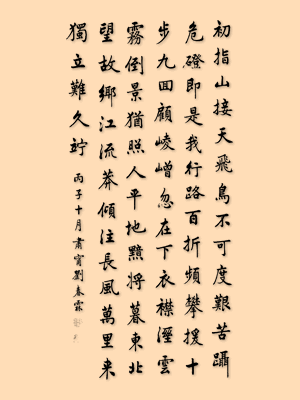 初指山接天飛鳥不可度艱苦躡
危磴即是我行路百折頻攀援十
步九回顧崚嶒忽在下衣襟溼雲
霧倒景猶照人平地黯將暮東北
望故鄉江流莽傾注長風萬里來
獨立難久竚
丙子十月肅甯劉春霖